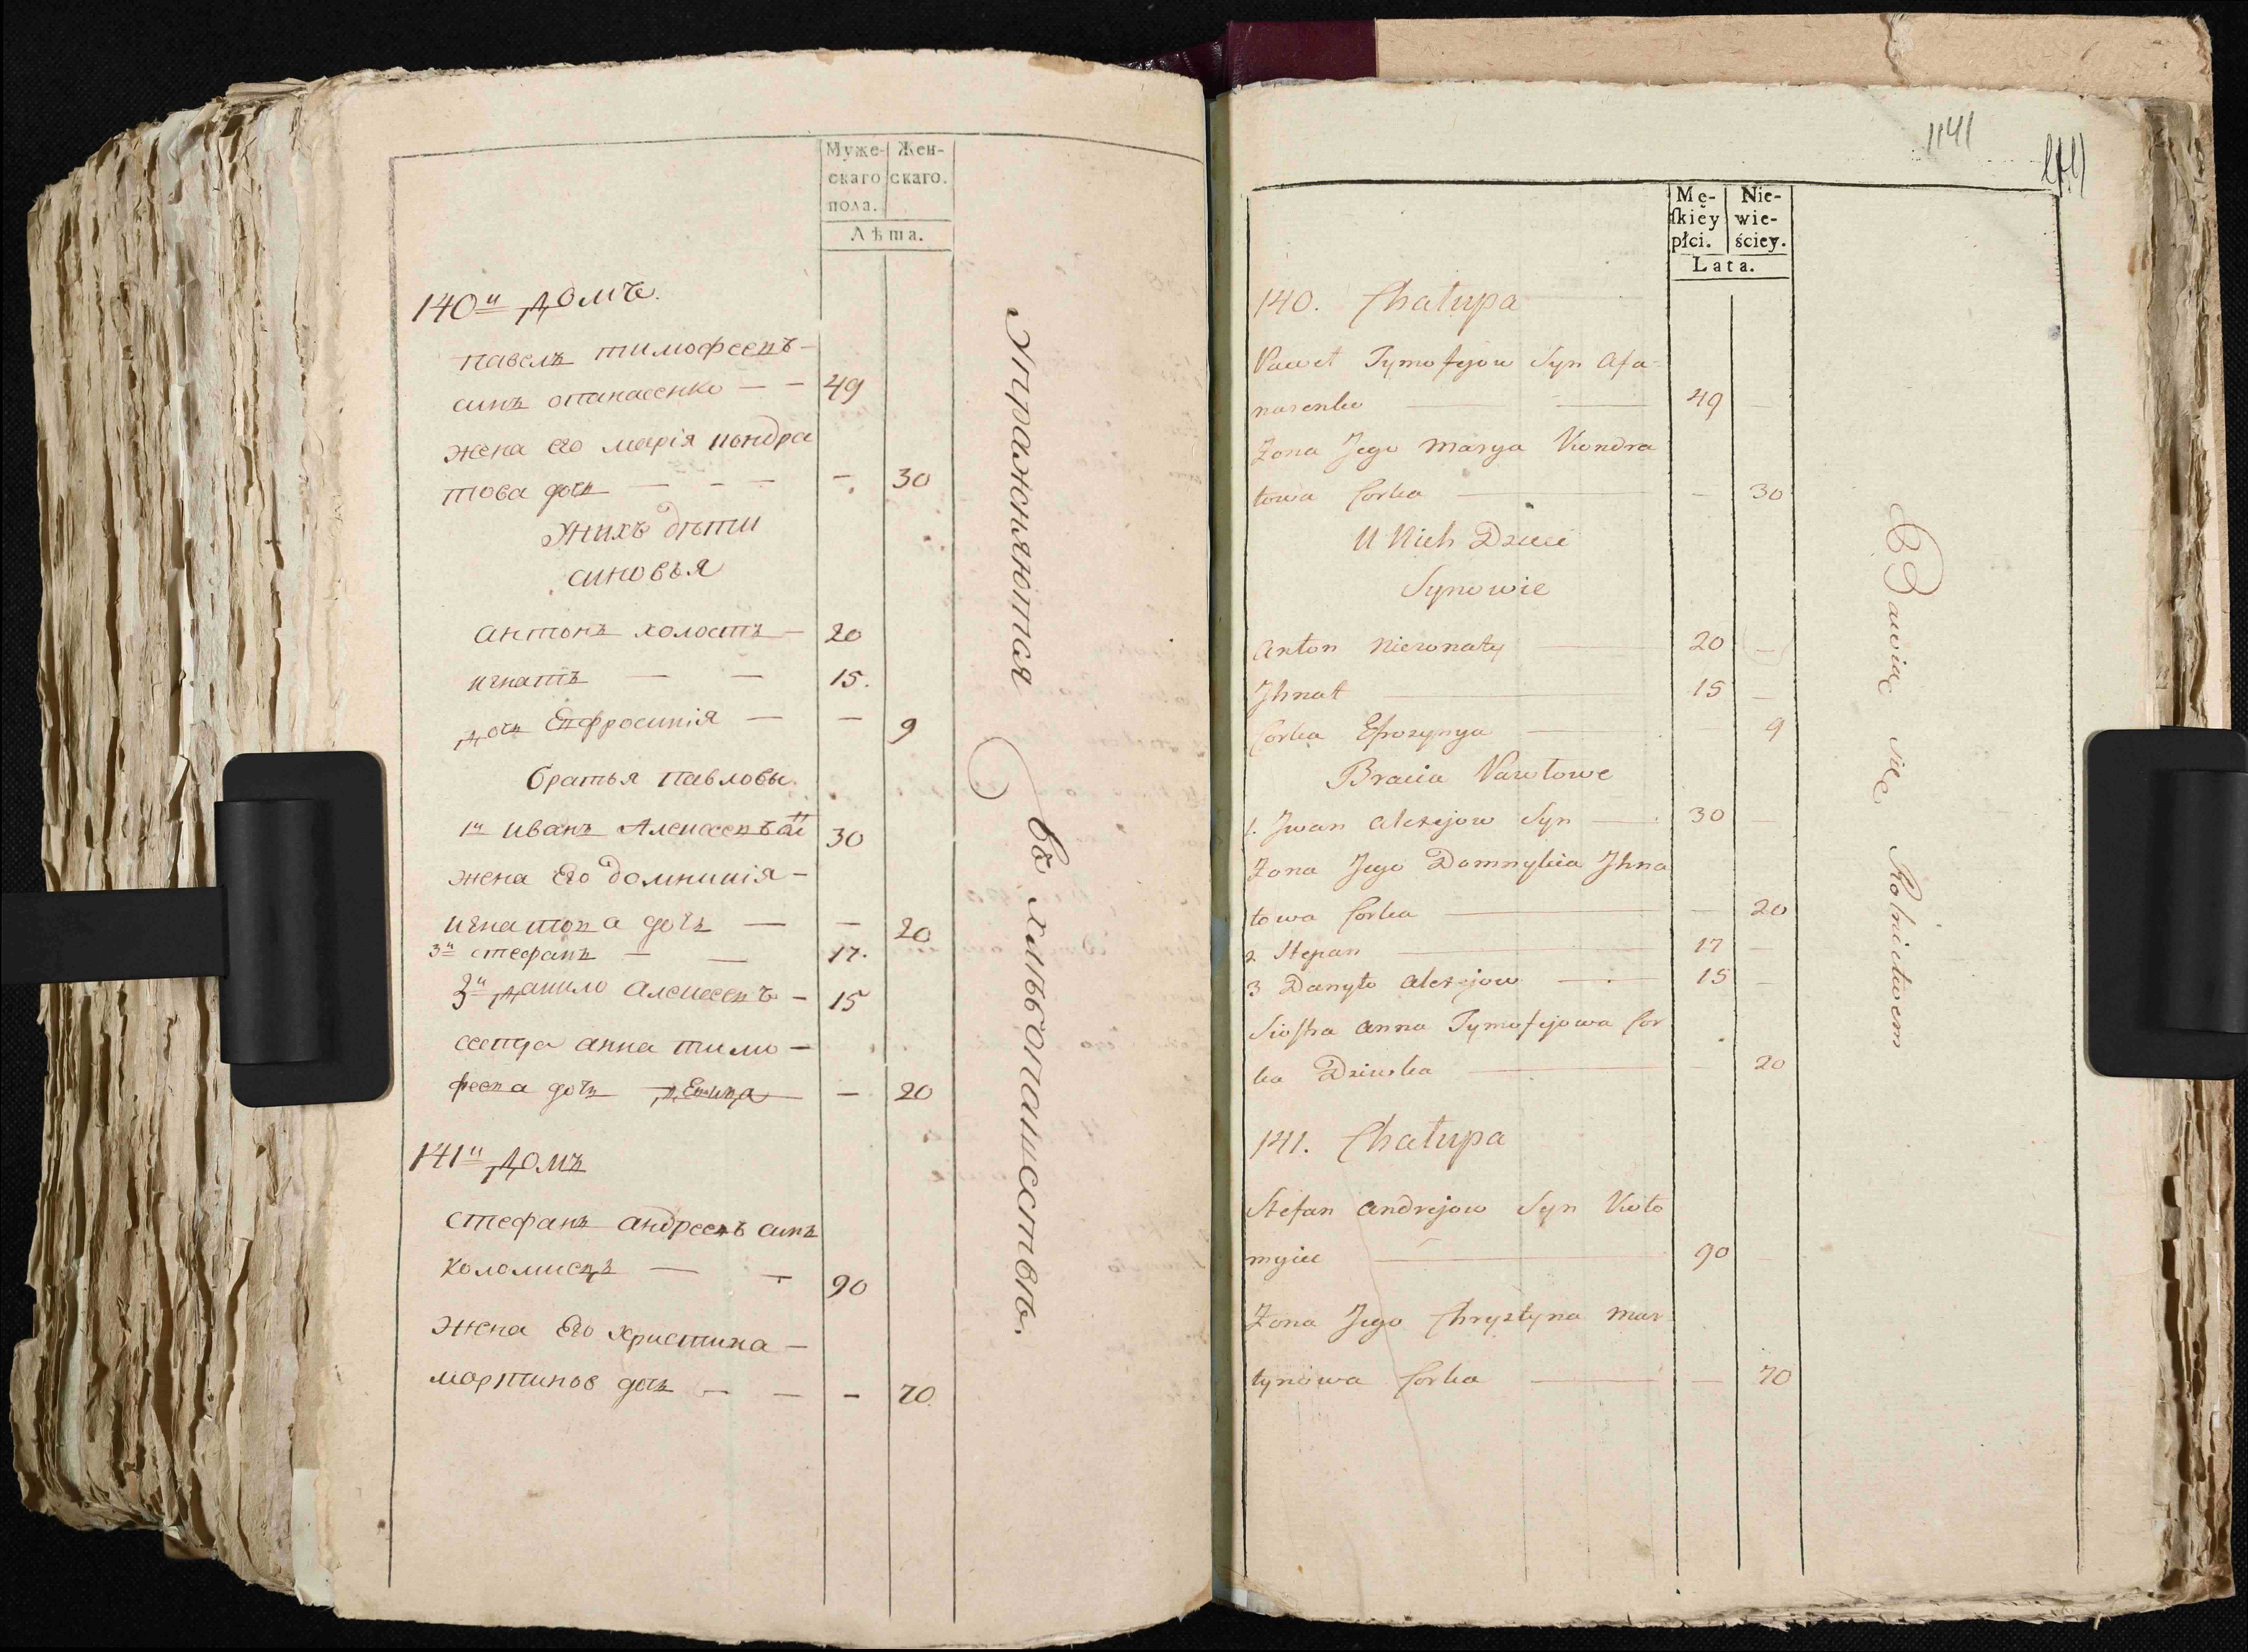 Муже-
скаго
пола.
Жен-
скаго.
Лѣта.
140й домъ.
павелъ тимофеевъ-
синъ опанасенко — — 49
жена его марія кондра
това дочь — — — 30
Унихъ дѣти
синовья
антонъ холостъ — 20
игнатъ — — 15.
дочь Евфросинія — — 9
братья павловы.
1й иванъ Алексеевъ 30
жена Его домникія —
игнатова дочь — — 20
3й стефанъ — — 17.
3й данило алексеевъ — 15
сестра анна тимо—
феева дочь девица — 20
141й домъ
стефанъ андреевъ синъ
коломиецъ — — 90
жена Его христина —
мартинов дочь — — — 70
Упражняются въ хлѣбопашествѣ.
1141
Mę-
skiey
płci.
Nie-
wie-
ściey.
Lata.
140. Chałupa
Paweł Tymofejow Syn Afa-
nasenko — — 49 —
Zona Jego Marya Kondra
towa Corka — — 30
U Nich Dzieci
Synowie
Anton Niezonaty — 20 —
Jhnat — 15 —
Corka Efrozynya — 9
Bracia Pawłowe
1. Jwan Alexejow Syn — 30 —
Zona Jego Domnykia Jhna
towa Corka — — 20
2 Stepan — 17 —
3 Danyło Alexejow — 15 —
Siostra Anna Tymofejowa Cor
ka Dziewka — — 20
141. Chałupa
Stefan Andrejow Syn Koło
myiec — 90 —
Zona Jego Chrystyna Mar-
tynowa Corka — — 70
Bawiąc się Rolnictwem